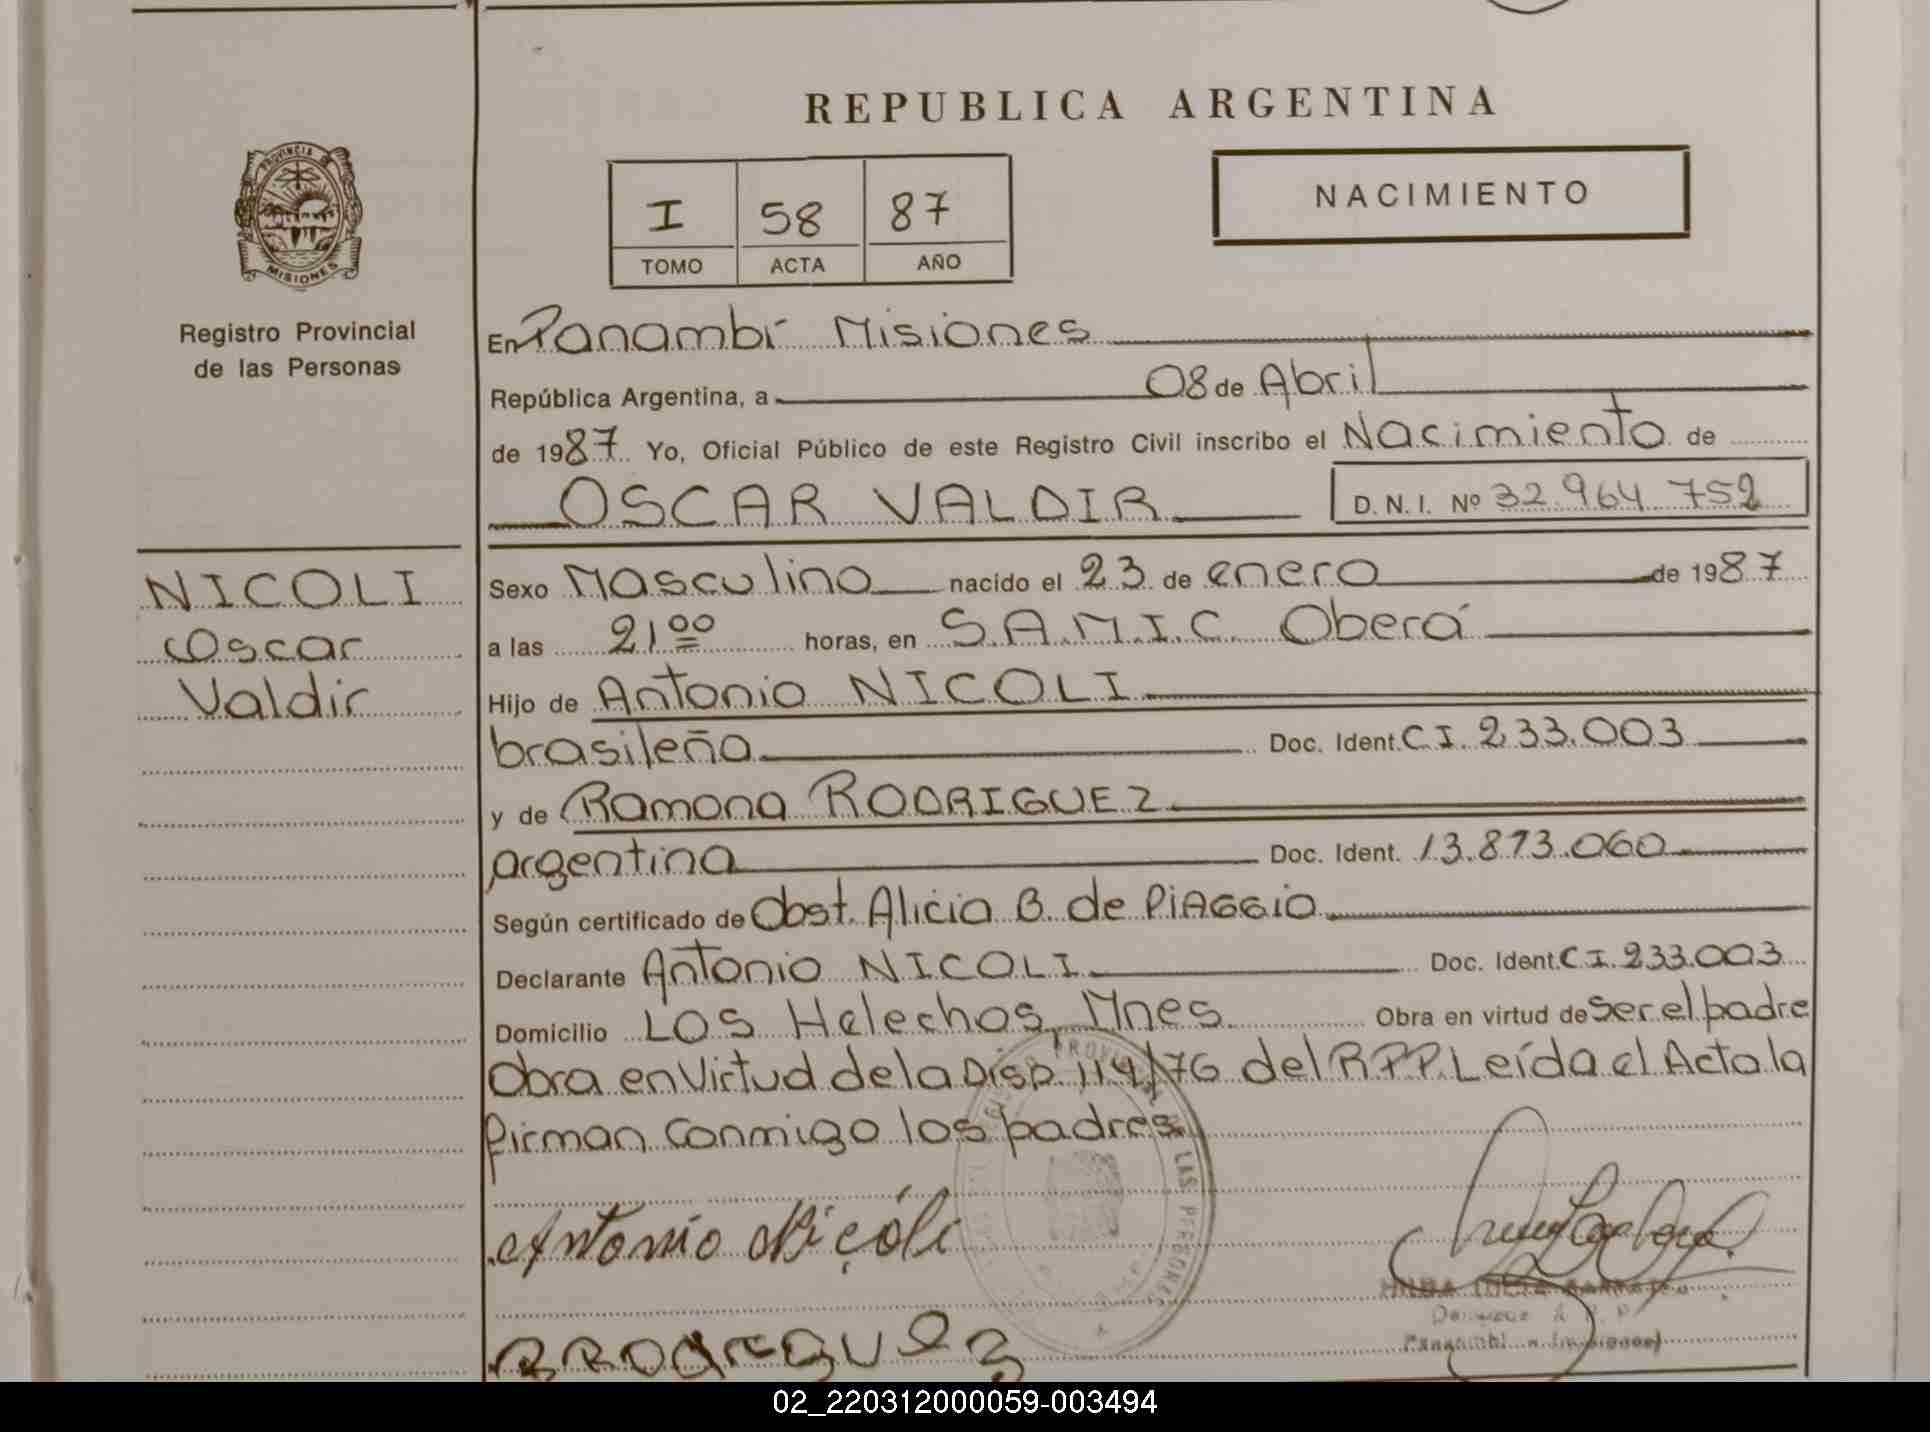 REPUBLICA ARGENTINA
PROVINCIA DE
MISIONES
Registro Provincial
de las Personas
I 58 87
TOMO ACTA AÑO
NACIMIENTO
En Panambí Misiones
República Argentina, a 08 de Abril
de 1987 Yo, Oficial Público de este Registro Civil inscribo el Nacimiento de
OSCAR VALDIR D. N. I. Nº 32.964.752
NICOLI
Oscar
Valdir
Sexo Masculino nacido el 23 de enero de 1987
a las 21 00 horas, en S.A.M.I.C. Oberá
Hijo de Antonio NICOLI
brasileña Doc. Ident. C I. 233.003
y de Ramona RODRIGUEZ
argentina Doc. Ident. 13.873.060
Según certificado de Obst. Alicia B. de PiAGGiO
Declarante Antonio NICOLI Doc. Ident. C I. 233.003
Domicilio LOS Helechos, Mnes Obra en virtud de Ser el padre
Obra en Virtud de la Disp. 114/76 del R.P.P. Leída el Acta la
firman conmigo los padres
Antonio Niçóli
LAS PERSONAS
Panambí (Misiones)
02_220312000059-003494